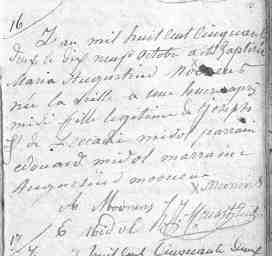 16
L'an mil huit cent cinquante
deux le dix neuf octobre a été baptisée
Maria Augustine Moorens
née la veille à une heure après
midi fille legitime de Joseph
et de Leocadie midol parrain
edouard midol marraine
Augustine moorens
Moorens
E midol
17
L'an mil huit cent cinquante deux